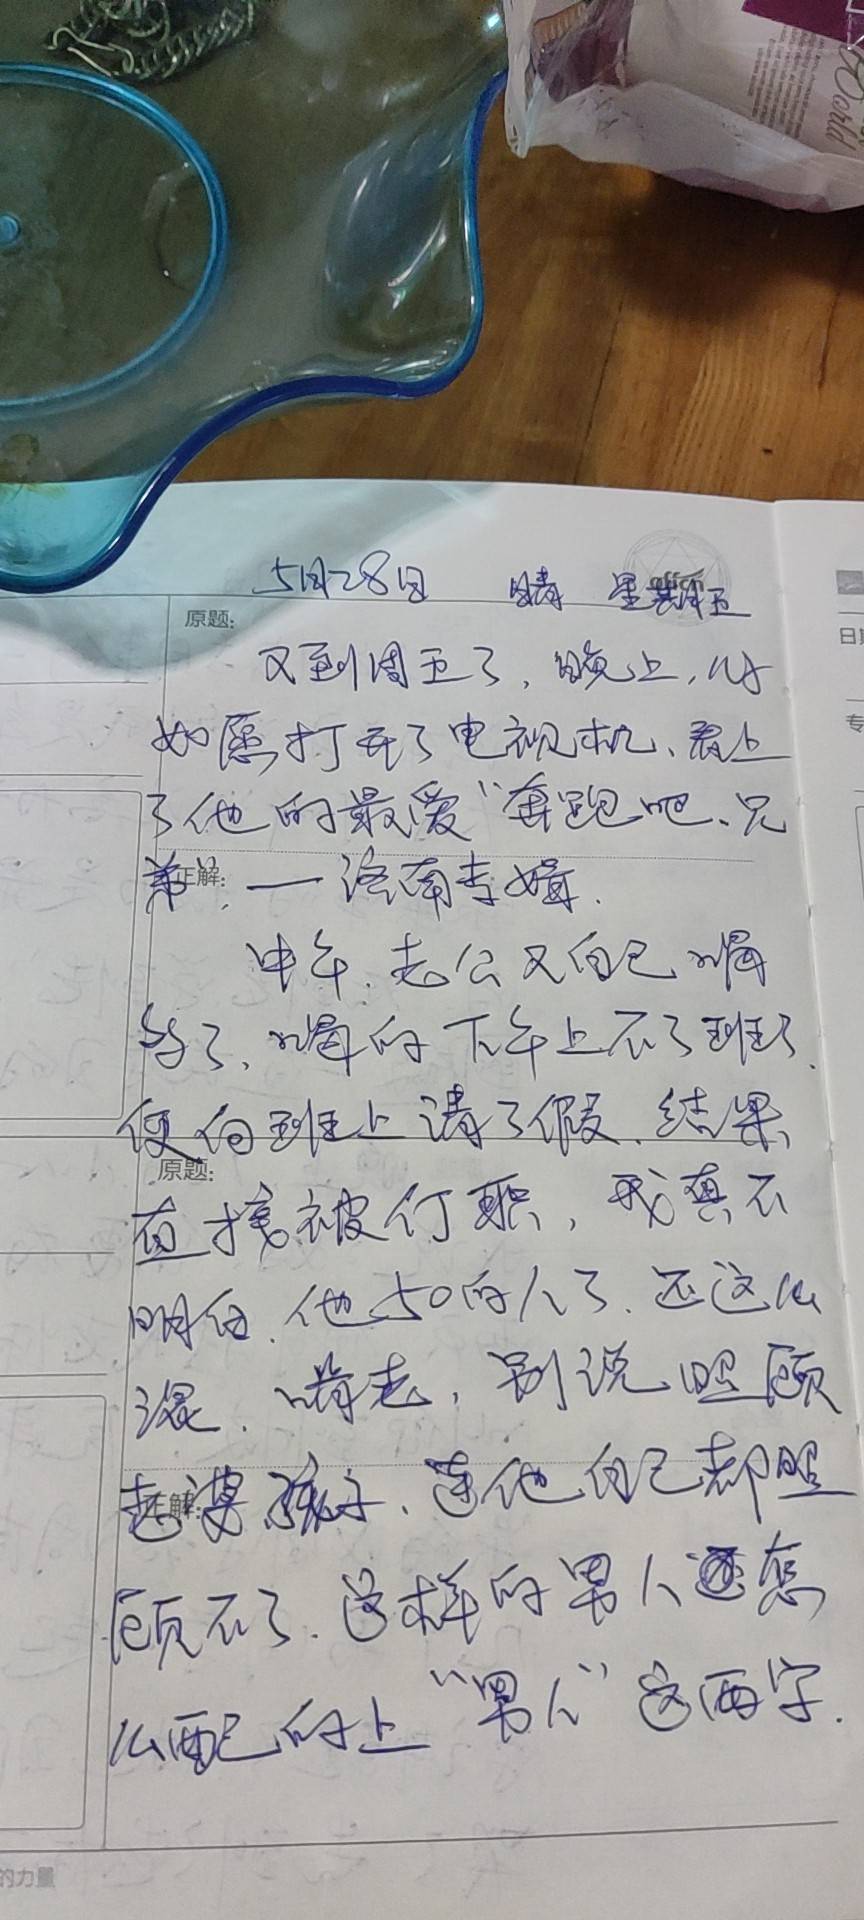 orld
offcn
5月28日 晴 星期五
日期
专
原题:
又到周五了，晚上，
如愿打开了电视机、看上
了他的最爱“奔跑吧、兄
弟”，一济南专辑.
正解:
中午、老公又自己喝
多了、喝的下午上不了班了.
便向班上请了假、结果
原题:
直接被停职，我真不
明白、他50的人了、还这么
混、啃老，别说照顾
老婆孩子、连他自己都照
正解:
顾不了、这样的男人还怎
么配的上“男人”这两字.
的力量